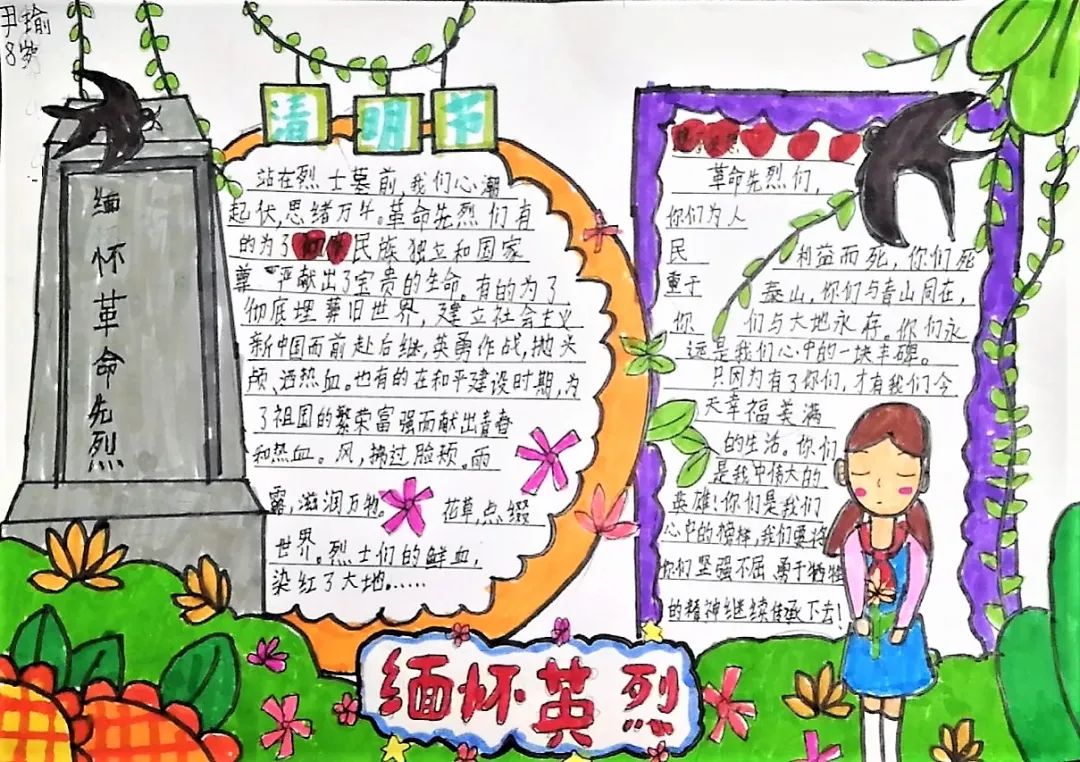 尹瑜
8岁
缅怀革命先烈
清明节
站在烈士墓前,我们心潮
起伏,思绪万千。革命先烈们有
的为了民族独立和国家
尊严献出了宝贵的生命。有的为了
彻底埋葬旧世界,建立社会主义
新中国而前赴后继,英勇作战,抛头
颅、洒热血。也有的在和平建设时期,为
了祖国的繁荣富强而献出青春
和热血。风,拂过脸颊。雨
露,滋润万物。花草,点缀
世界。烈士们的鲜血,
染红了大地……
革命先烈们,
你们为人
民利益而死,你们死
重于泰山,你们与青山同在,
你们与大地永存。你们永
远是我们心中的一块丰碑。
只因为有了你们,才有我们今
天幸福美满
的生活。你们
是我中伟大的
英雄!你们是我们
心中的榜样,我们要将
你们坚强不屈 勇于牺牲
的精神继续传承下去!
缅怀英烈